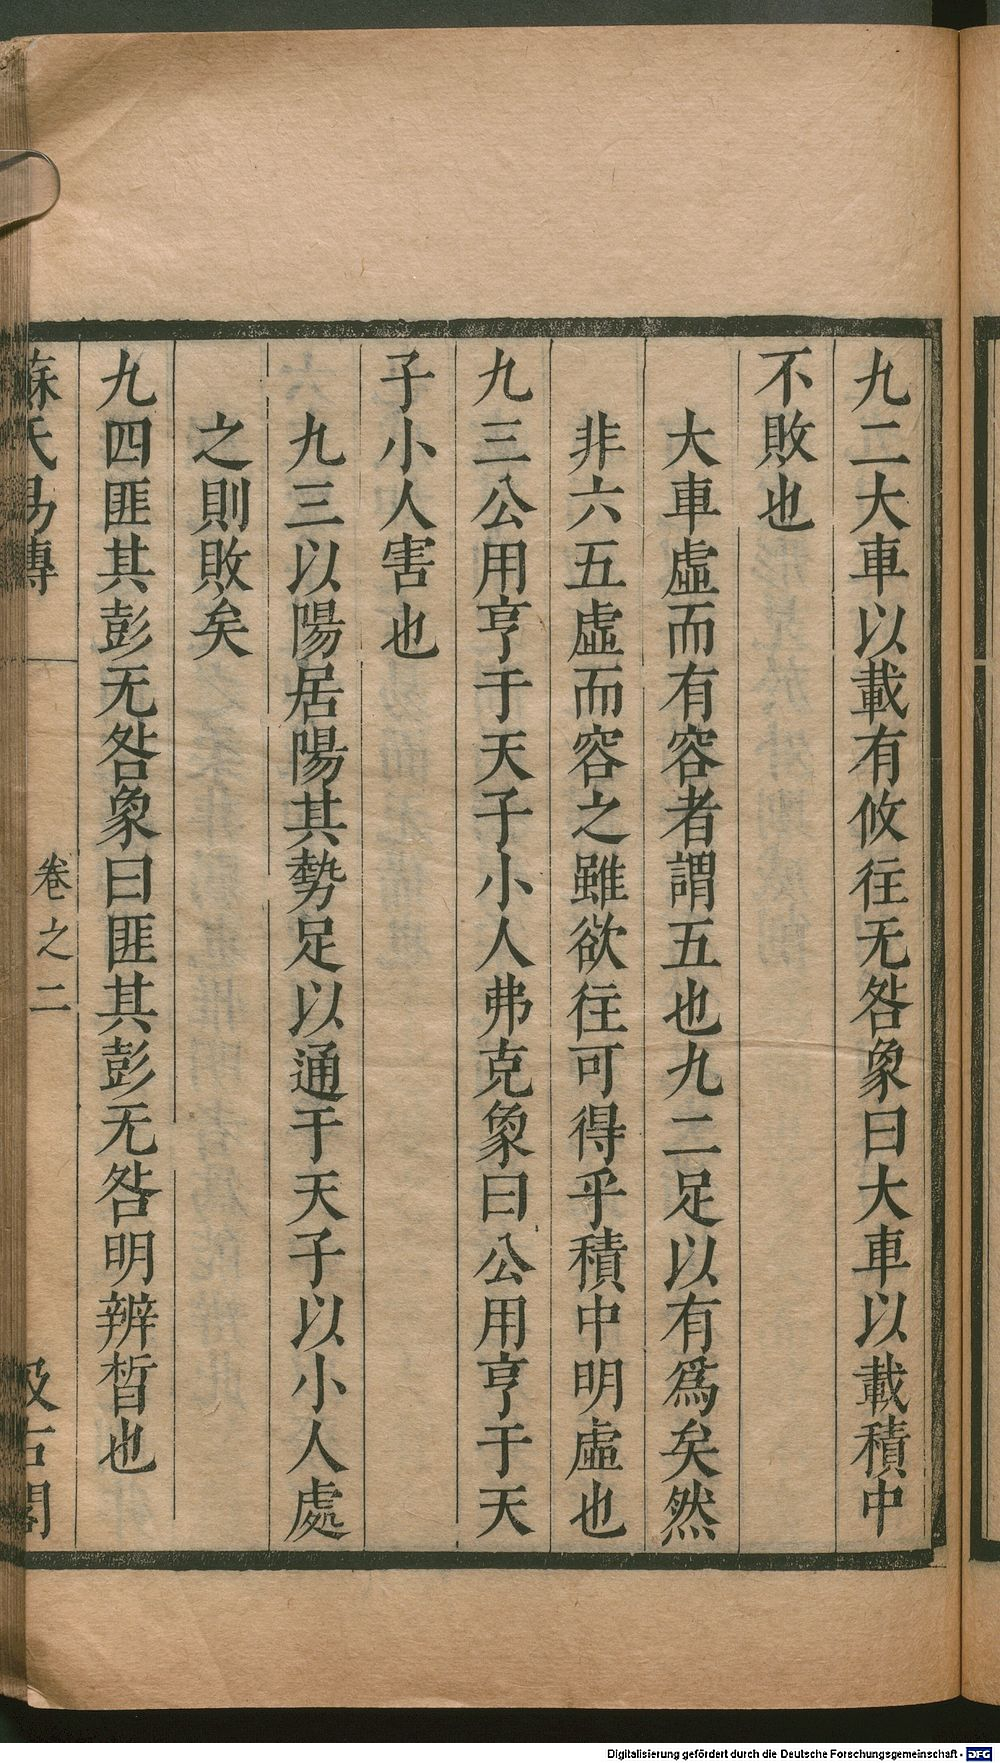 九二大車以載有攸往无咎象曰大車以載積中
不敗也
大車虛而有容者謂五也九二足以有爲矣然
非六五虛而容之雖欲往可得乎積中明虛也
九三公用亨于天子小人弗克象曰公用亨于天
子小人害也
九三以陽居陽其勢足以通于天子以小人處
之則敗矣
九四匪其彭无咎象曰匪其彭无咎明辨晢也
蘇氏易傳
卷之二
汲古閣
Digitalisierung gefördert durch die Deutsche Forschungsgemeinschaft - DFG